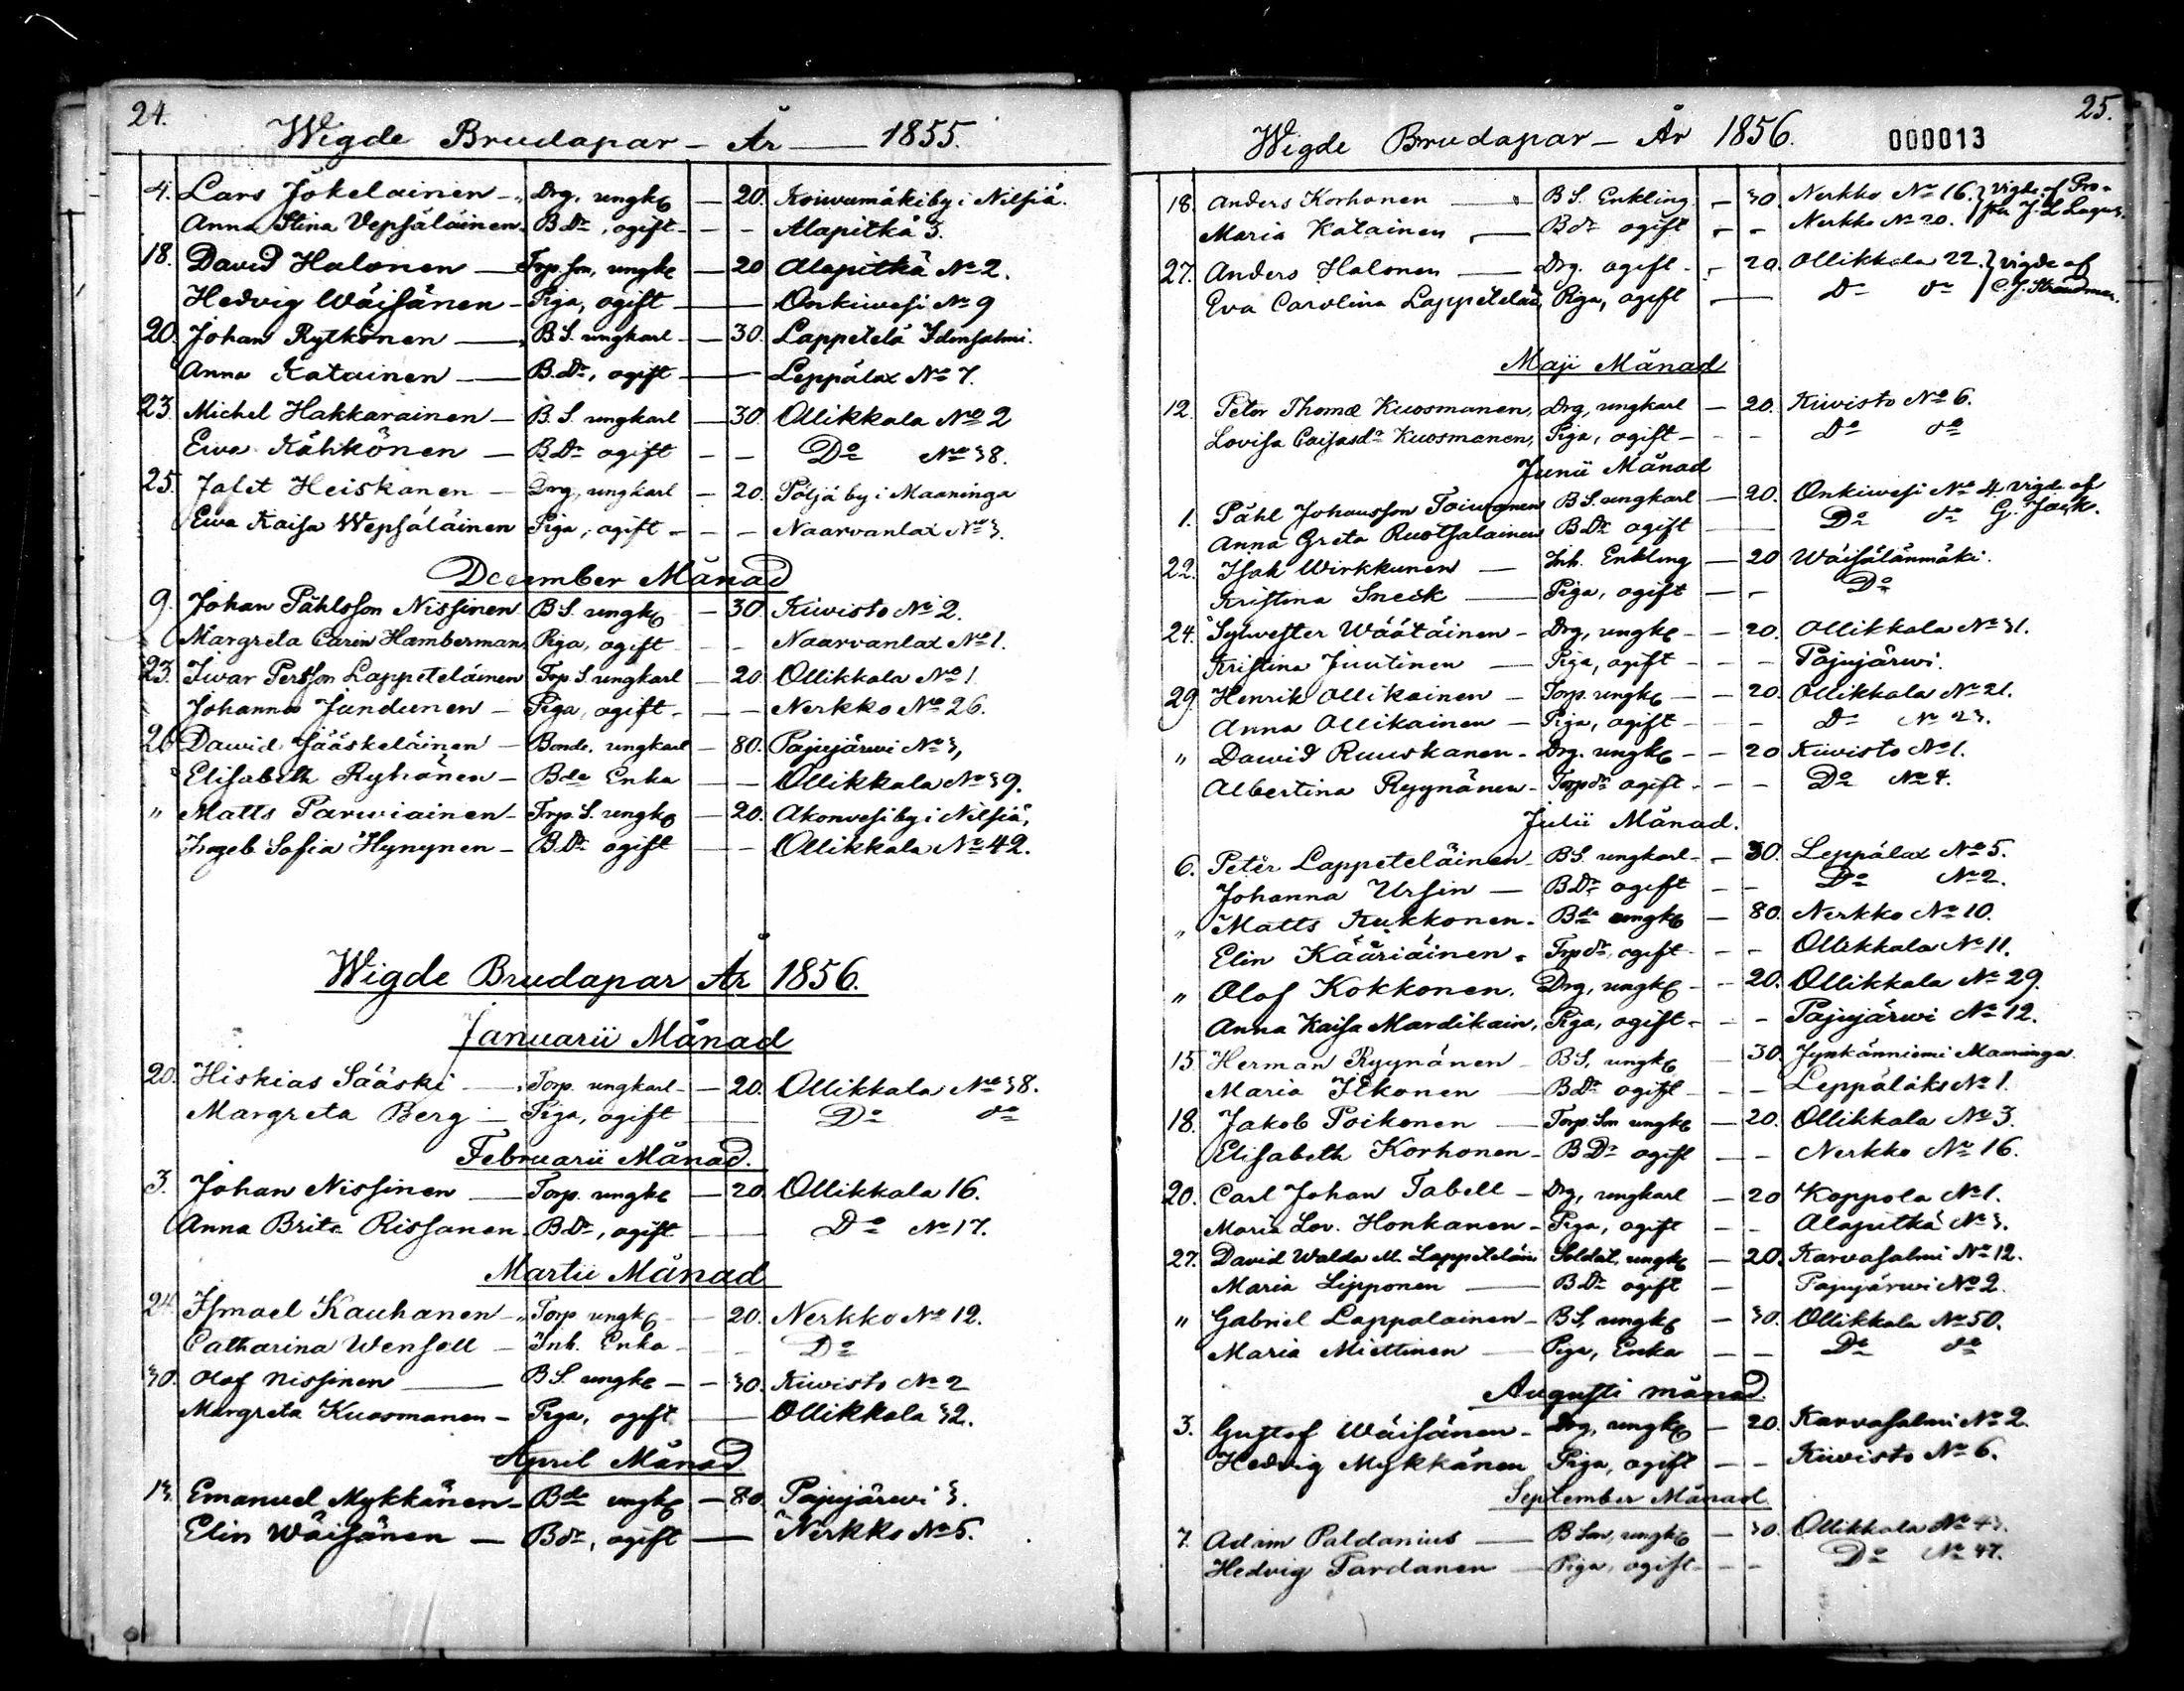 24.
Wigde Brudapar – År — 1855.
4. Lars Jokelainen – Drg, ungk. — 20. Koivumäki by i Nilsiä.
Anna Stina Vepsäläinen. B.Dr, ogift – – – Alapitkä 3.
18. David Halonen — Torp. son, ungk. — 20 Alapitkä No 2.
Hedvig Wäisänen – Piga, ogift — Onkiwesi No 9
20. Johan Rytkönen — B.S. ungkarl – — 30. Lappetelä Idensalmi.
Anna Katainen — B.Dr, ogift — Leppälax No 7.
23. Michel Hakkarainen – B.S. ungkarl — 30. Ollikkala No 2
Ewa Kähkönen – B.Dr ogift – – Do No 38.
25. Jafet Heiskanen – Drg, ungkarl – 20. Pöljä by i Maaninga
Ewa Kaisa Wepsäläinen Piga, ogift – – – Naarvanlax No 3.
December Månad
9. Johan Påhlsson Nissinen B S. ungk. – 30. Kiwisto No 2.
Margreta Carin Hamberman, Piga, ogift – – Naarvanlax No 1.
23. Iwar Persson Lappeteläinen Torp. S. ungkarl – 20. Ollikkala No 1.
Johanna Jundunen – Piga, ogift – – – Nerkko No 26.
26 Dawid Jääskeläinen – Bonde, ungkarl – 80. Pajujärwi No 3,
Elisabeth Ryhänen – Bde Enka – – Ollikkala No 39.
" Matts Parwiainen – Torp. S. ungk. – 20. Akonvesi by i Nilsiä,
Ingeb. Sofia Hynynen – B.Dr ogift – – Ollikkala No 42.
Wigde Brudapar År 1856.
Januarii Månad
20. Hiskias Sääski — Torp. ungkarl – – 20. Ollikkala No 38.
Margreta Berg – Piga, ogift — Do do
Februarii Månad.
3. Johan Nissinen — Torp. ungk. – 20. Ollikkala 16.
Anna Brita Rissanen. B.Dr, ogift — Do No 17.
Martii Månad
24. Ismael Kauhanen – Torp. ungk. – 20. Nerkko No 12.
Catharina Wensell – Inh. Enka – – – Do
30. Olof Nissinen — B S. ungk. – – 30. Kiwisto No 2
Margreta Kuosmanen – Piga, ogift — Ollikkala 32.
April Månad
13. Emanuel Mykkänen – Bde ungk. – 80. Pajujärwi 3.
Elin Wäisänen — Bdr, ogift — Nerkko No 5.
25.
Wigde Brudapar – År 1856.
000013
18. Anders Korhonen — B S. Enkling. – 30. Nerkko No 16. } vigde af Pro-
Maria Katainen — B dr ogift – – Nerkko No 20.
27. Anders Halonen — Drg. ogift – – 20. Ollikkala 22. } vigde af
Eva Carolina Lappeteläi Piga, ogift — Do do
Maji Månad
12. Peter Thomæ Kuosmanen, Drg, ungkarl – 20. Kiwisto No 6.
Lovisa Caisasdr Kuosmanen, Piga, ogift – – – Do do
Junii Månad
1. Påhl Johansson Toiwanen B S. ungkarl – 20. Onkiwesi No 4. vigde af
Anna Greta Ruotsalainen B Dr ogift — Do do G. Jack.
22. Isak Wirkkunen — Inh. Enkling – 20 Wäisälänmäki.
Kristina Sneck — Piga, ogift – – Do
24. Sylwester Wäätäinen – Drg, ungk. – – 20. Ollikkala No 31.
Kristina Juutinen — Piga, ogift – – – Pajujärwi.
29. Henrik Ollikainen – Torp. ungk. – – 20. Ollikkala No 21.
Anna Ollikainen – Piga, ogift – – – Do No 23.
" Dawid Ruuskanen – Drg. ungk. – – 20 Kiwisto No 1.
Albertina Ryynänen – Torp dr ogift – – – Do No 4.
Julii Månad.
6. Peter Lappeteläinen – B S. ungkarl – – 30. Leppälax No 5.
Johanna Ursin — B Dr ogift – – Do No 2.
" Matts Kukkonen. Bde ungk. – 80. Nerkko No 10.
Elin Kääriäinen. Torp dr, ogift – – – Ollikkala No 11.
" Olof Kokkonen. Drg, ungk. – – 20. Ollikkala No 29.
Anna Kaisa Mardikain, Piga, ogift – – – Pajujärwi No 12.
15. Herman Ryynänen – B S, ungk. – 30. Jynkänniemi Maaninga.
Maria Itkonen – B Dr ogift – – – Leppälaks No 1.
18. Jakob Poikonen — Torp. Son ungk. – 20. Ollikkala No 3.
Elisabeth Korhonen – B Dr ogift – – Nerkko No 16.
20. Carl Johan Tabell – Drg, ungkarl – 20 Koppola No 1.
Maria Lov. Honkanen – Piga, ogift – – Alapitkä No 3.
27. David Walda M. Lappeteläin Soldat, ungk. – 20. Karvasalmi No 12.
Maria Lipponen — B Dr ogift – Pajujärwi No 2.
" Gabriel Lappalainen – B S, ungk. – 30. Ollikkala No 50.
Maria Miettinen — Piga, Enka – – Do do
Augusti månad.
3. Gustof Wäisänen – Drg, ungk. – 20. Karvasalmi No 2.
Hedvig Mykkänen Piga, ogift – – Kiwisto No 6.
September Månad
7. Adam Paldanius — B Son, ungk. – 30. Ollikkala No 43.
Hedvig Tardanen – Piga, ogift – – – Do No 47.